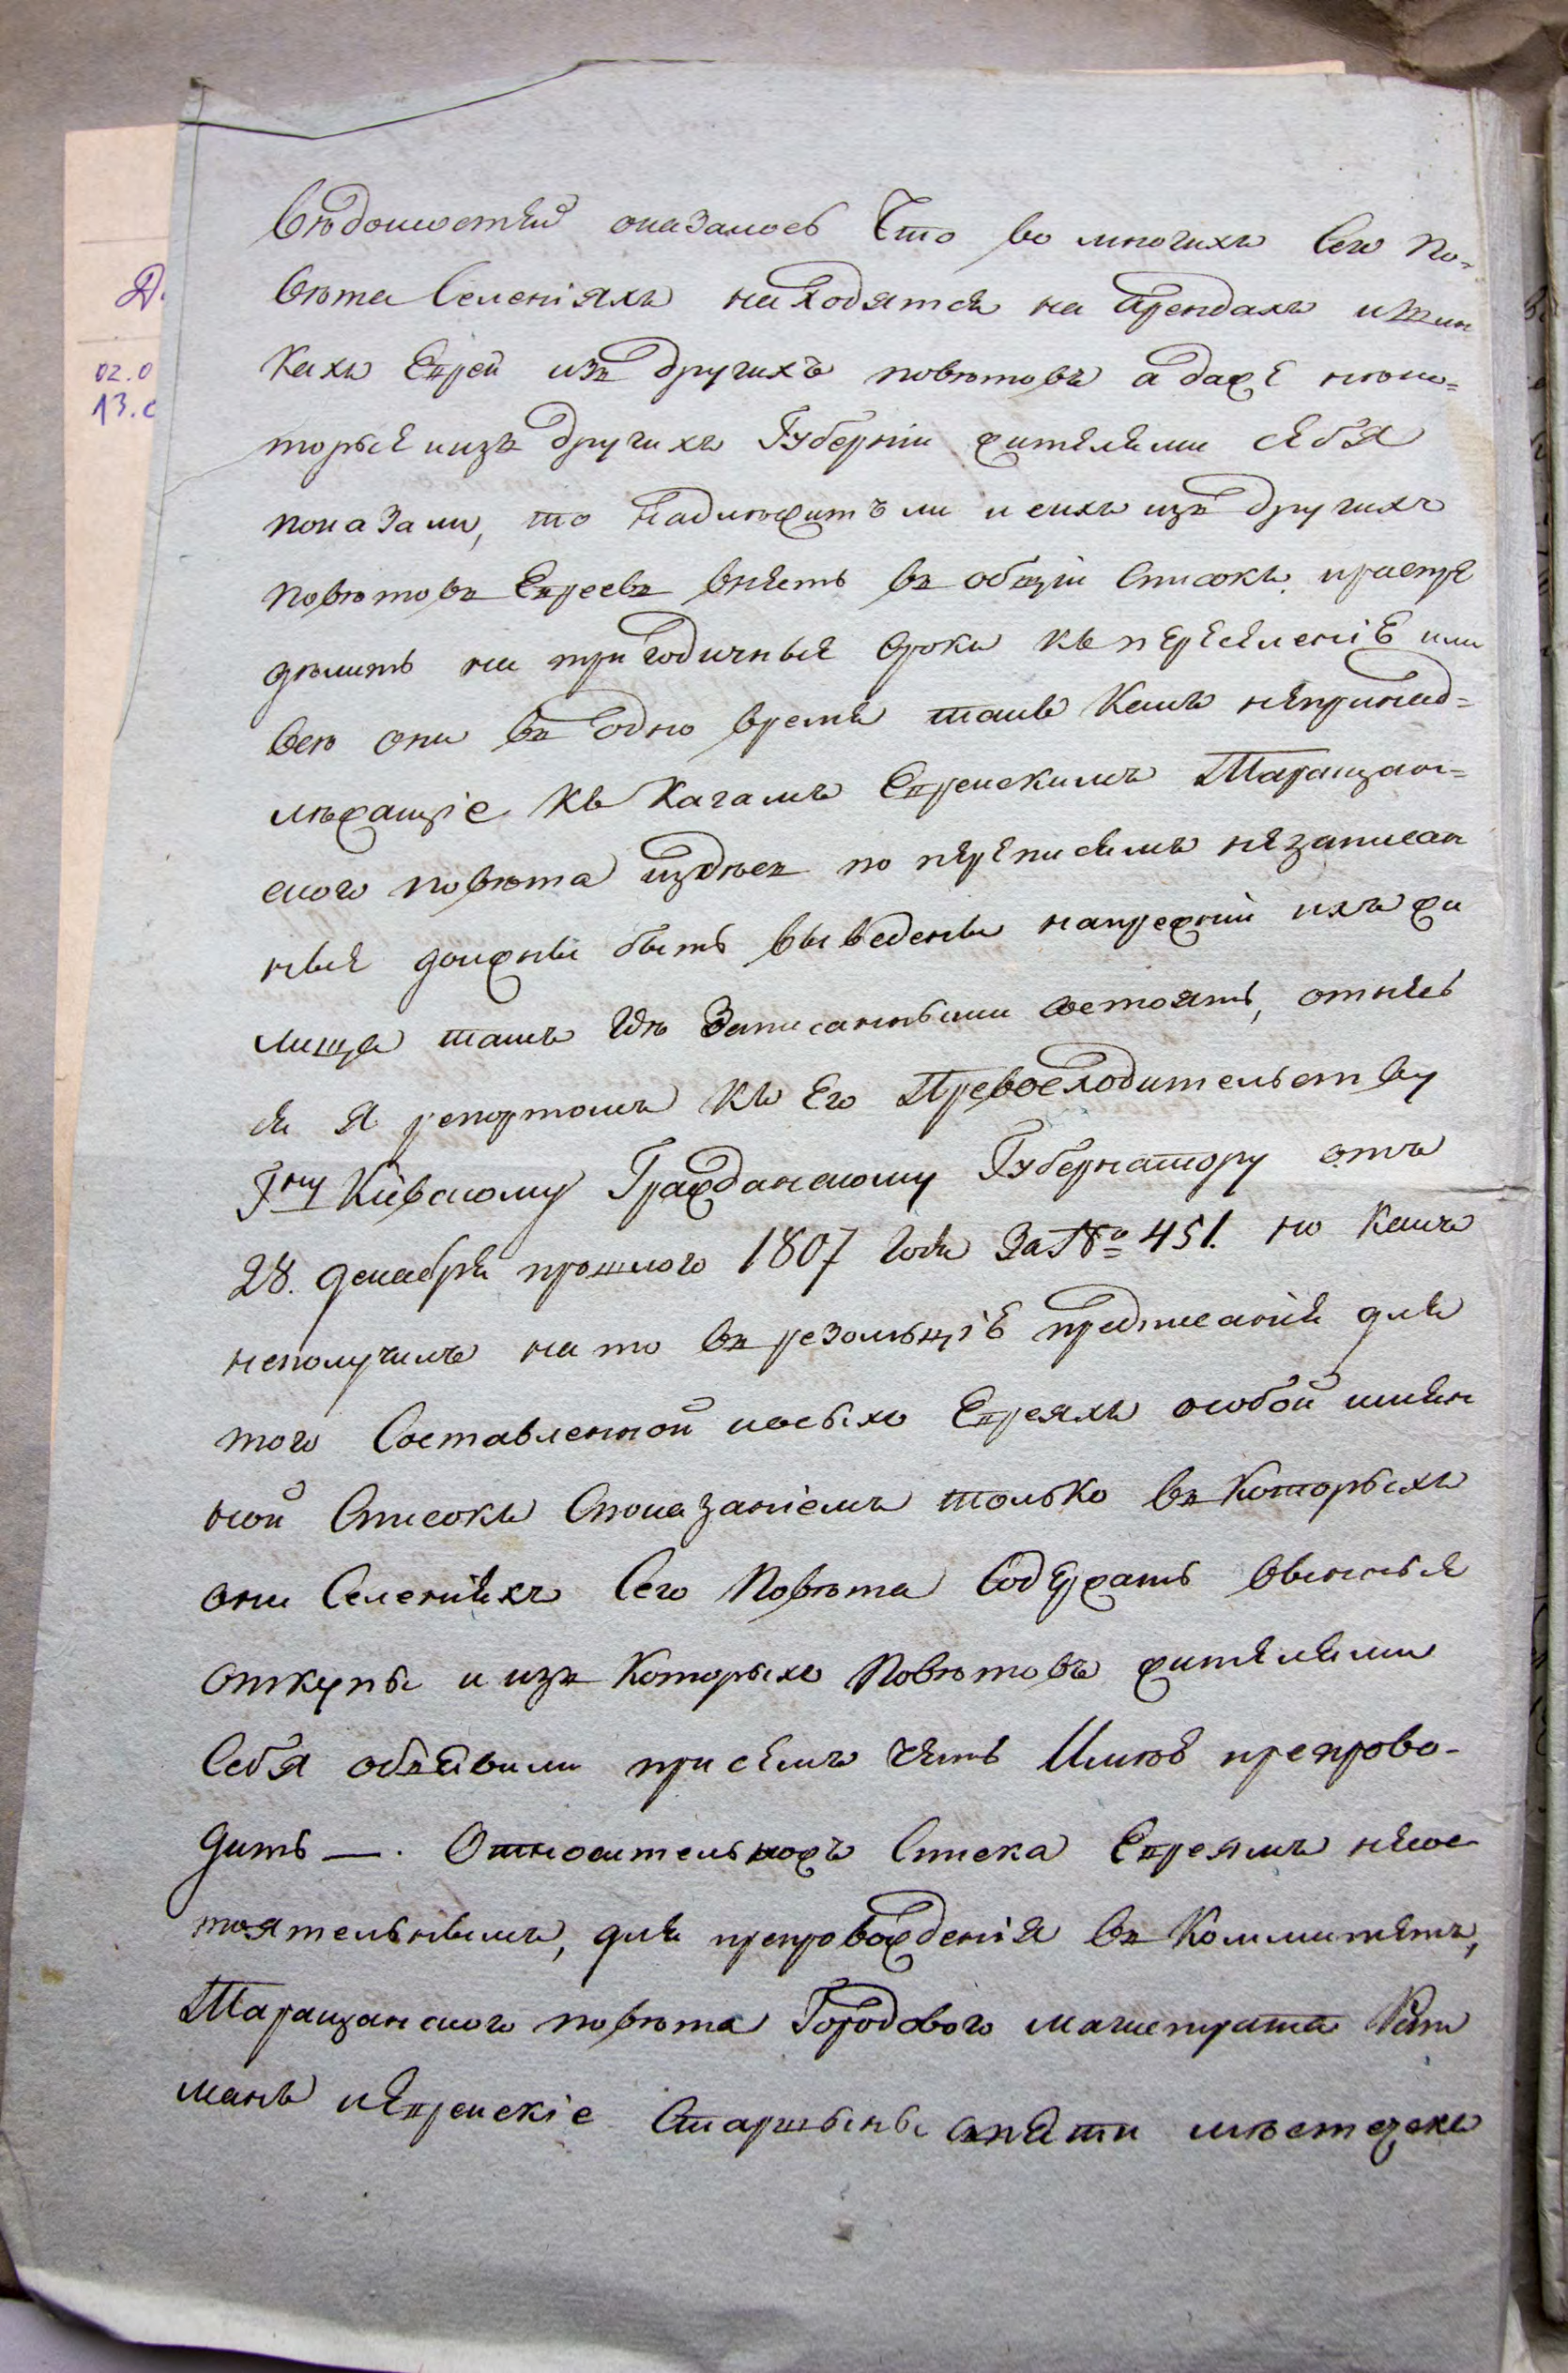 вѣдомостей оказалось что во многихъ сего по-
вѣта селеніяхъ находятся на арендахъ ишин
кахъ Евреи изъ другихъ повѣтовъ а даже нѣко-
торые иизъ другихъ Губерніи жителями себя
показали, то надлежитъ ли и сихъ изъ другихъ
повѣтовъ Евреевъ внесть въ общіи списокъ, ираспре
дѣлить на три годичные сроки къ переселеніе или
всѣ они въ одно время такъ какъ непринад-
лежащіе къ кагаламъ Еврейскимъ Таращан-
ского повѣта издѣсь по переписямъ незаписан
ные должны быть выведены напрежніи ихъ жи
лища тамъ гдѣ записанными состоятъ, отнес
ся я репортомъ къ его Превосходительству
Гну Кіевскому Гражданскому Губернатору отъ
28. декабря прошлого 1807 года За № 451. но какъ
неполучилъ на то въ резолюціе предписанія для
того составленной исъ ихъ Евреяхъ особой имян
ной списокъ споказаніемъ только въ которыхъ
они селеніяхъ сего повѣта содержатъ винные
откупы и изъ которыхъ повѣтовъ жителями
себя объявили при семъ честь имѣю препрово-
дить —. Относительножъ списка Евреямъ несос
тоятельнымъ, для препровожденія въ Коммитетъ,
Таращанского повѣта Городового магистрата Рат
манъ иЕврейскіе старшыны спяти мѣстечекъ